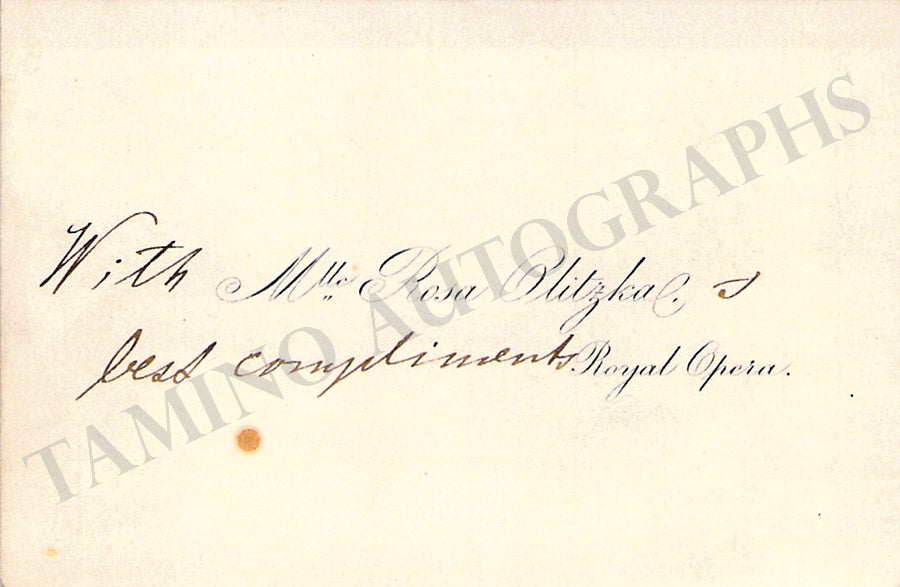 With Mlle Rosa Olitzka, s
best compliments Royal Opera.
TAMINO AUTOGRAPHS